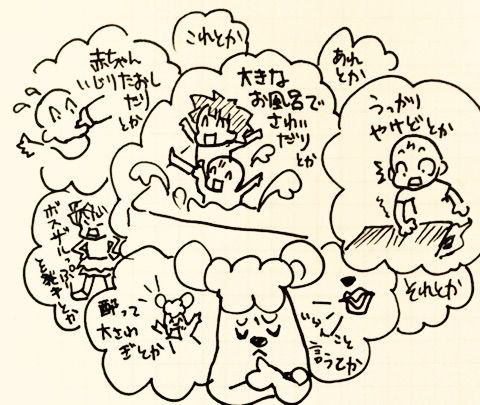 赤ちゃん
いじりたおし
たり
とか
これとか
あれ
とか
大きな
お風呂で
さわい
だり
とか
うっかり
やけどとか
発キとか
酔って
大さわ
ぎとか
いらんこと
言うとか
それとか